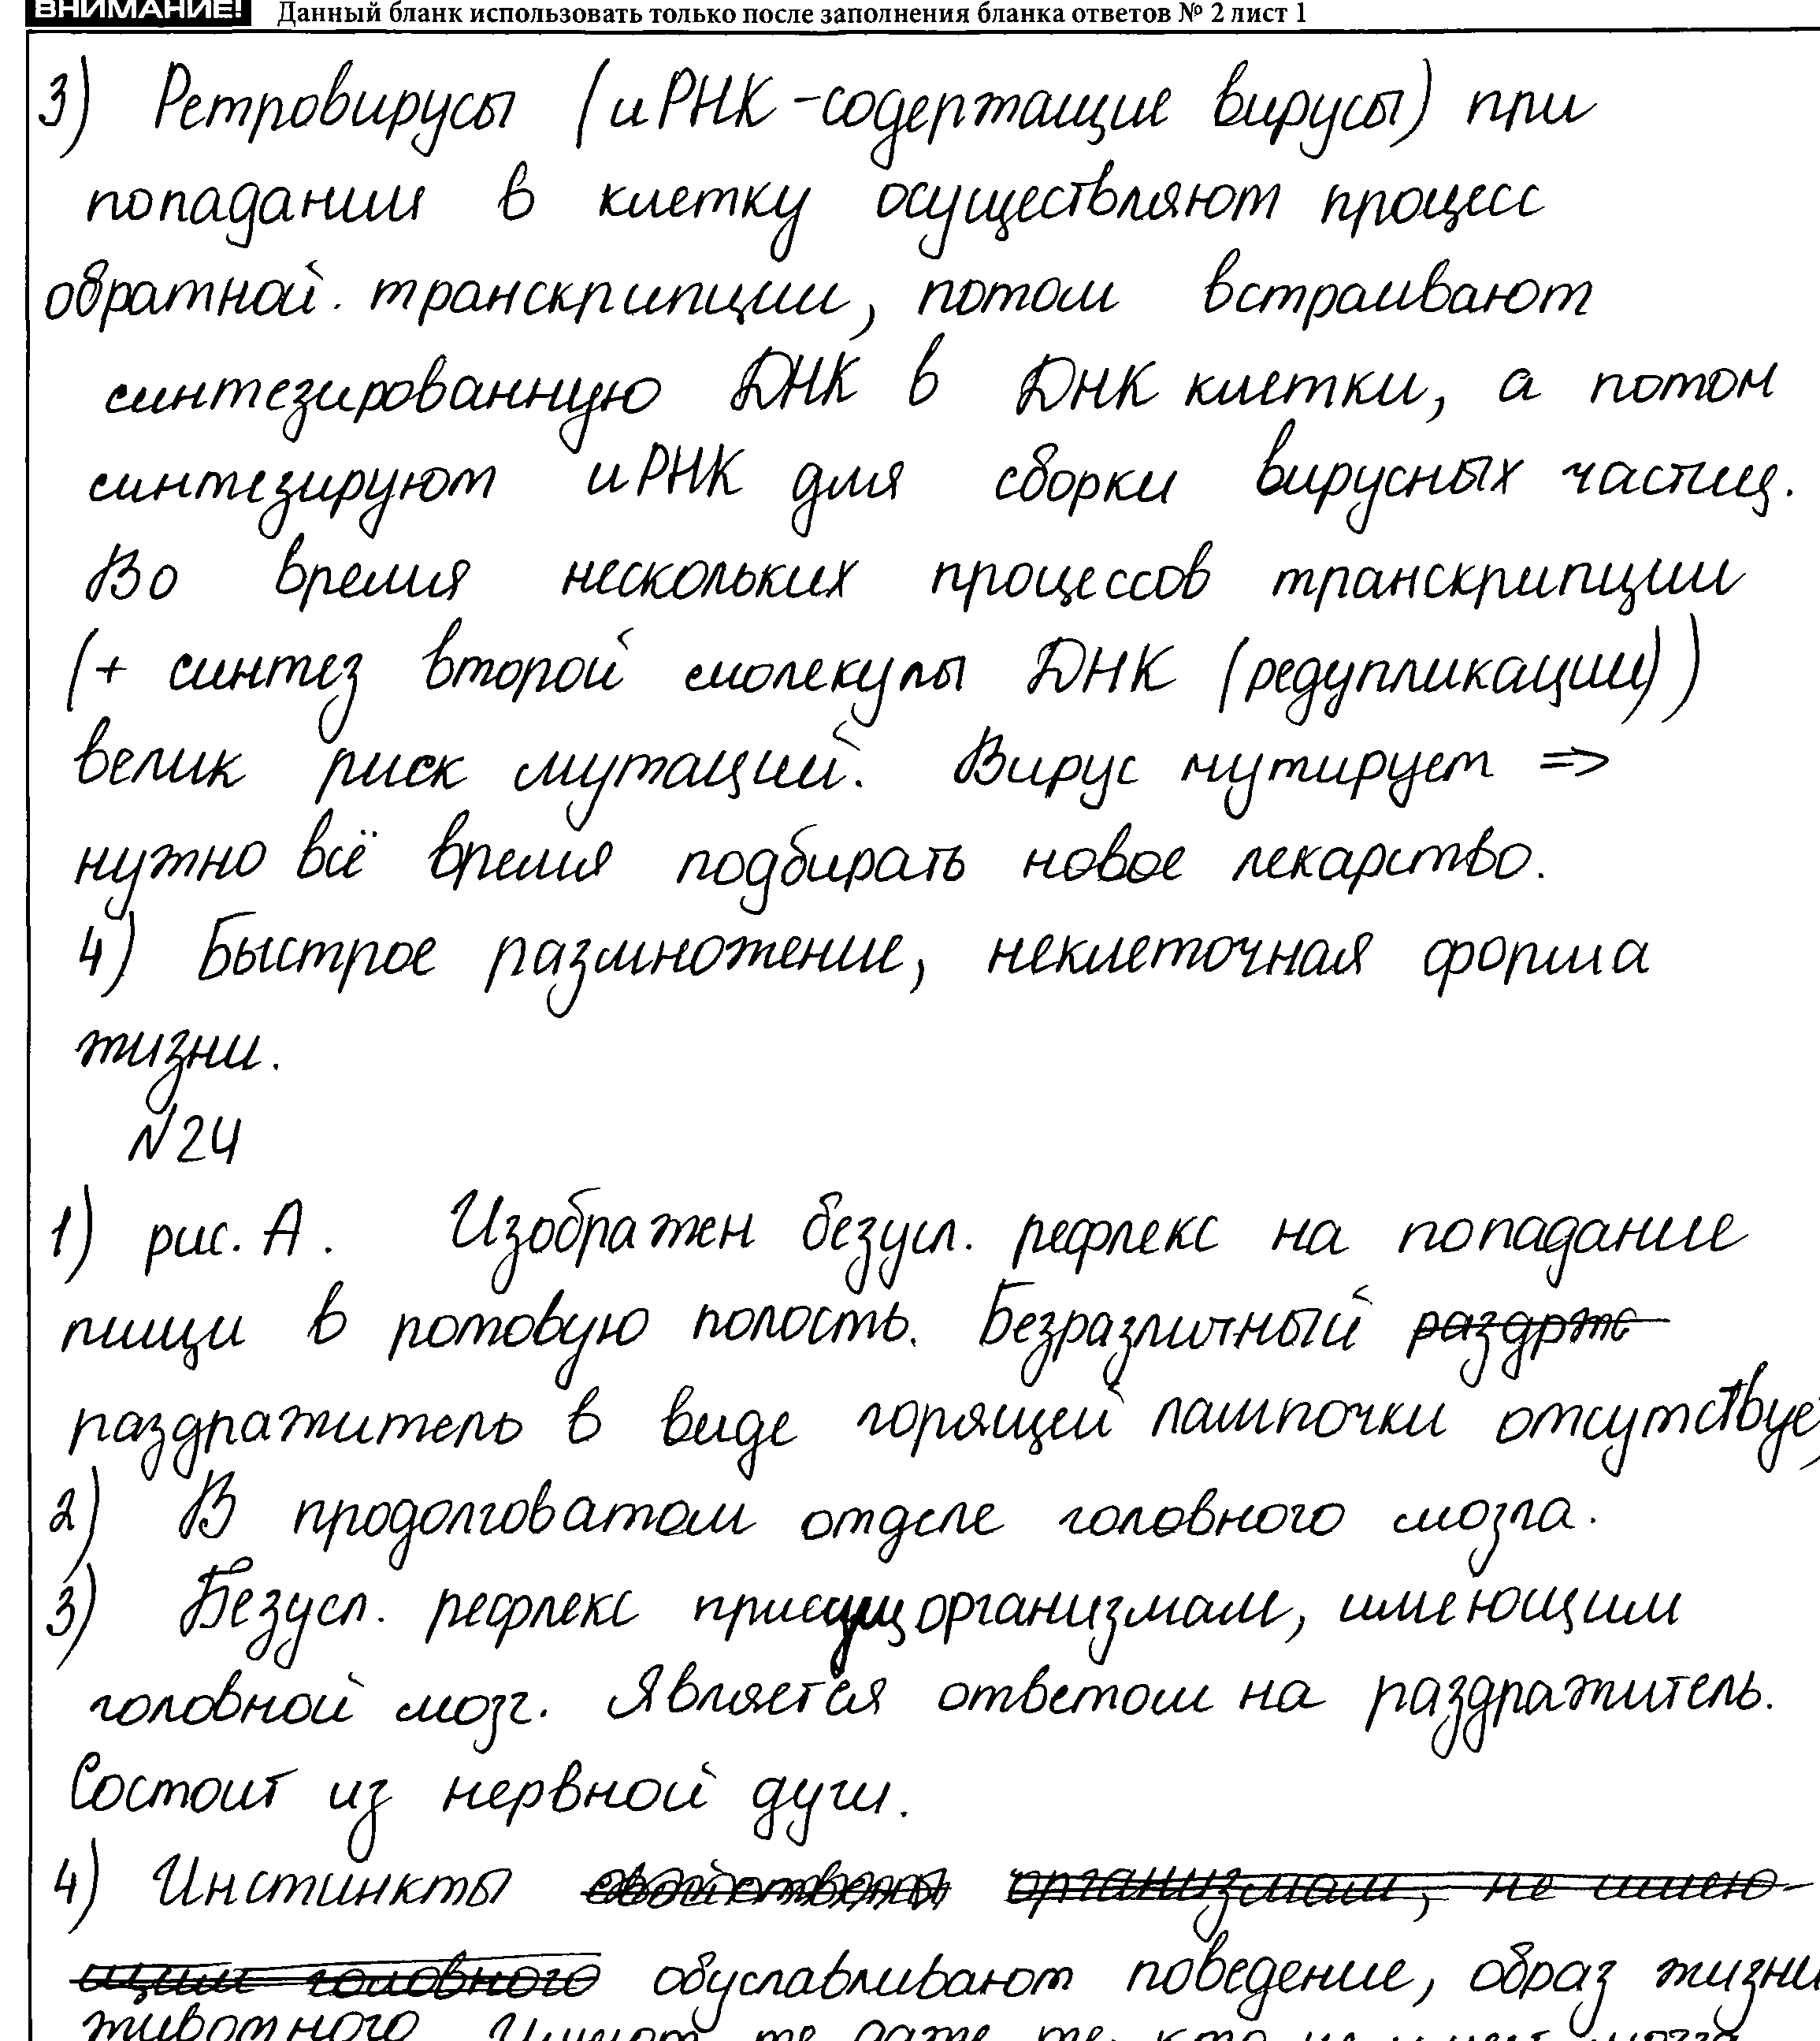 ВНИМАНИЕ! Данный бланк использовать только после заполнения бланка ответов № 2 лист 1
3) Ретровирусы (иРНК-содержащие вирусы) при
попадании в клетку осуществляют процесс
обратной транскрипции, потом встраивают
синтезированную ДНК в ДНК клетки, а потом
синтезируют иРНК для сборки вирусных частиц.
Во время нескольких процессов транскрипции
(+ синтез второй молекулы ДНК (редупликации))
велик риск мутаций. Вирус мутирует =>
нужно всё время подбирать новое лекарство.
4) Быстрое размножение, неклеточная форма
жизни.
№24
1) рис. А. Изображен безусл. рефлекс на попадание
пищи в ротовую полость. Безразличный раздрж
раздражитель в виде горящей лампочки отсутствуе
2) В продолговатом отделе головного мозга.
3) Безусл. рефлекс присущ организмам, имеющим
головной мозг. Является ответом на раздражитель.
Состоит из нервной дуги.
4) Инстинкты свойственны организмам, не имею-
щим головного обуславливают поведение, образ жизни
животного.